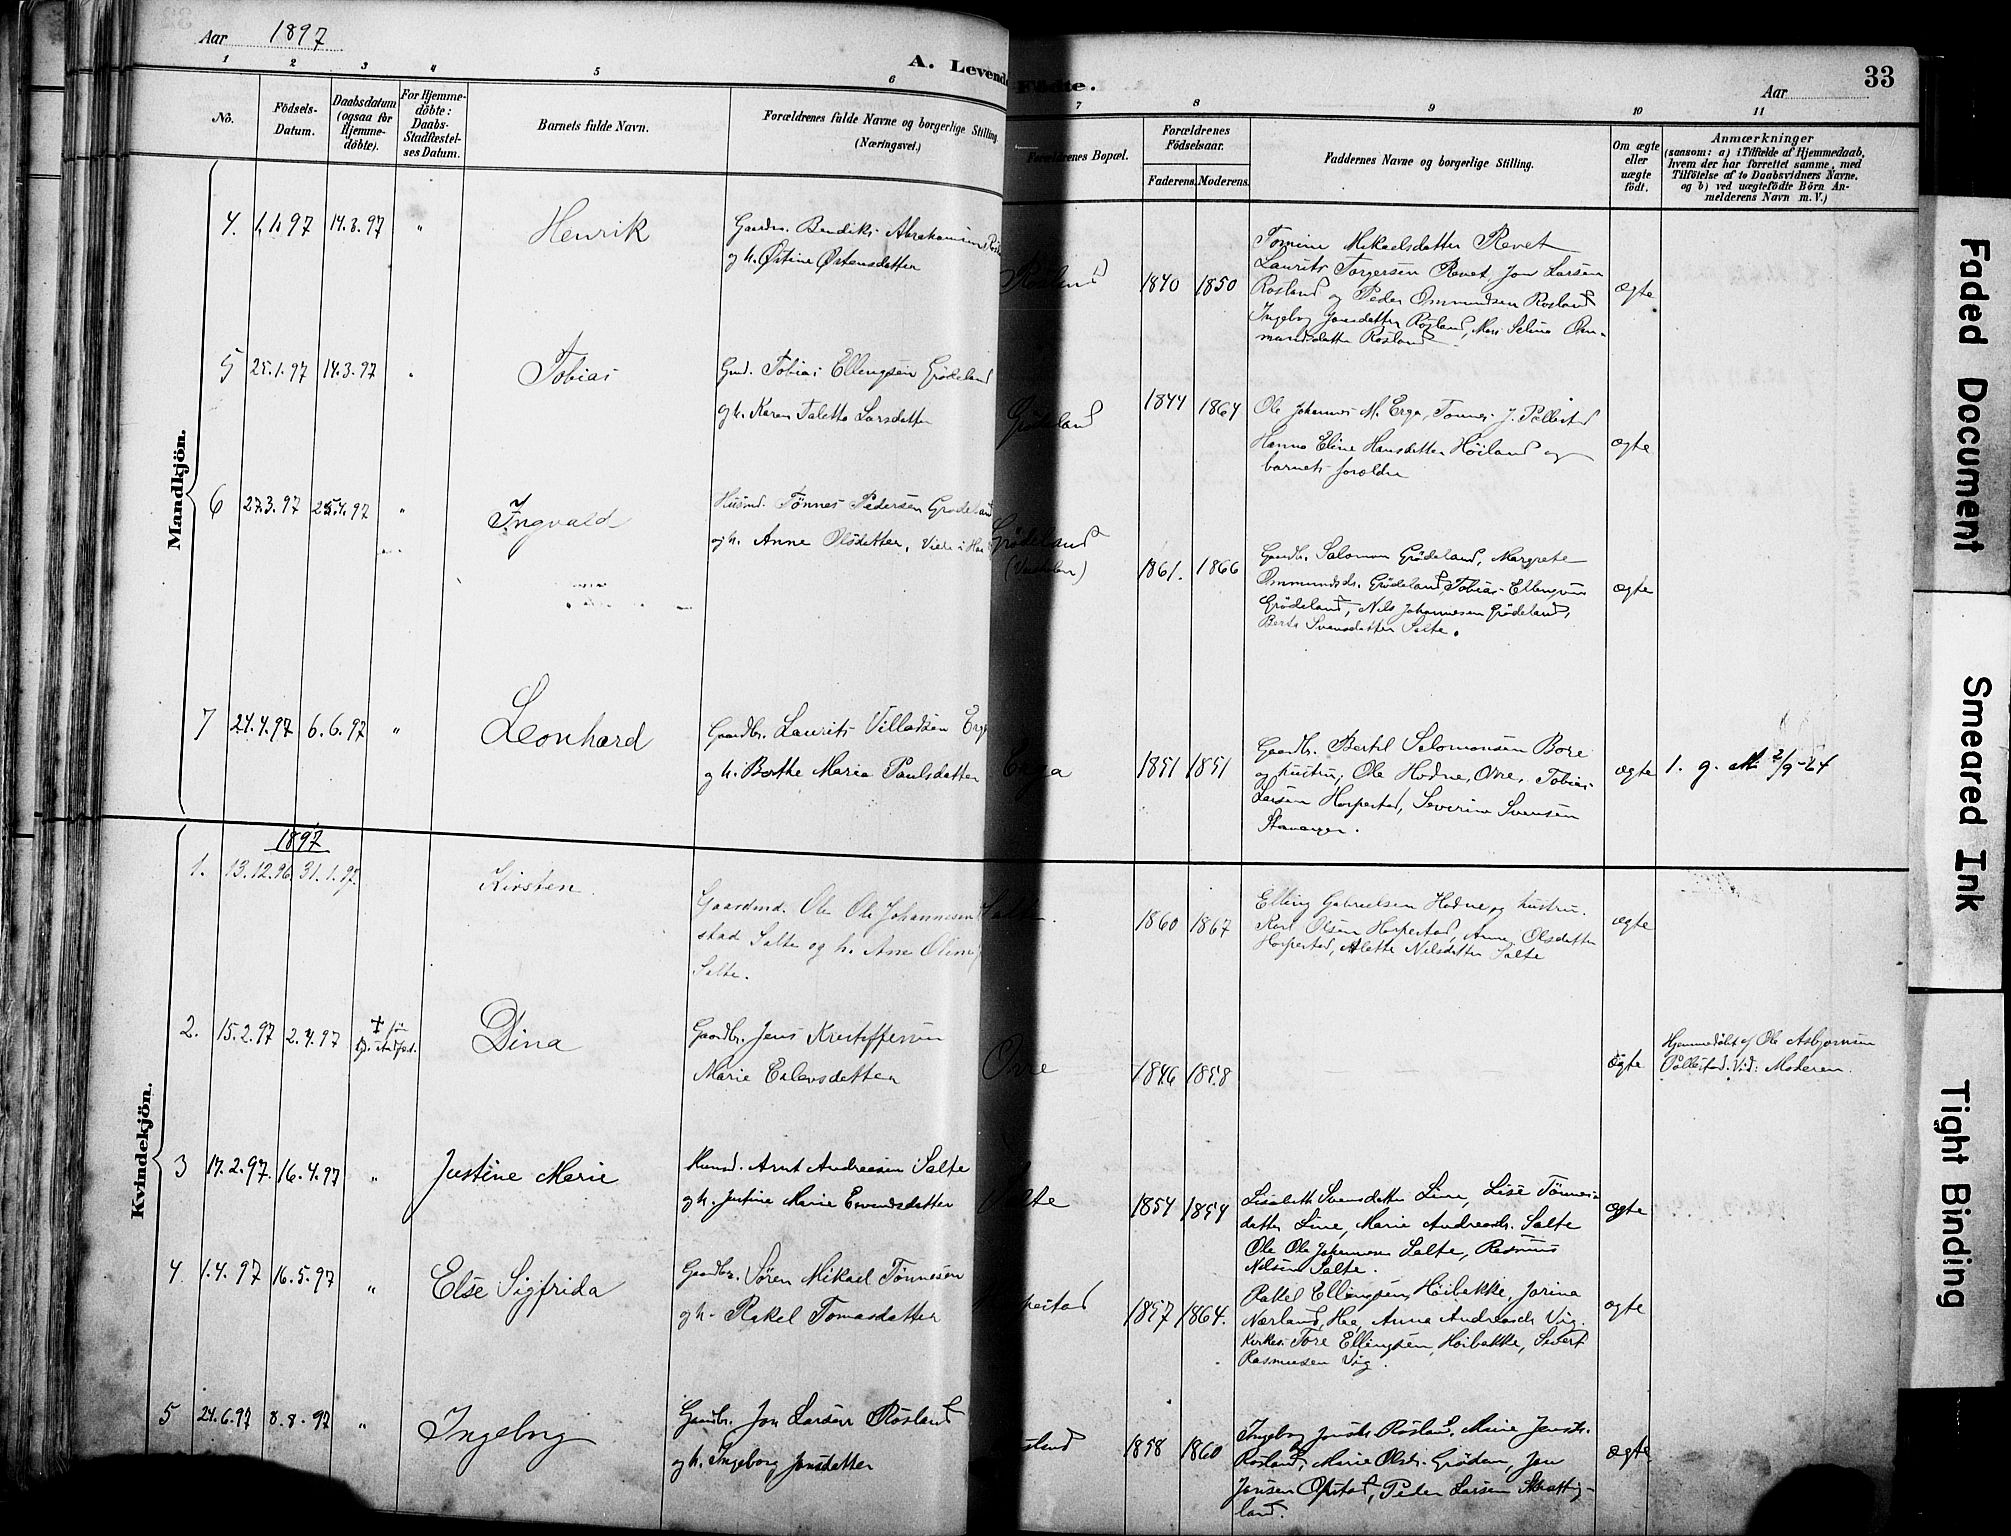 Aar 1897
A. Levende Fødte.
33
Aar
1 2 3 4 5 6 7 8 9 10 11
No.
Födsels-Datum.
Daabsdatum (ogsaa for Hjemme-döbte).
For Hjemme-döbte: Daabs-Stadfæstel-ses Datum.
Barnets fulde Navn.
Forældrenes fulde Navne og borgerlige Stilling. (Næringsvei.)
Forældrenes Bopæl.
Forældrenes Födselsaar.
Faderens. Moderens.
Faddernes Navne og borgerlige Stilling.
Om ægte eller uægte födt.
Anmærkninger
(saasom: a) i Tilfælde af Hjemmedaab,
hvem der har forrettet samme, med
Tilföielse af to Daabsvidners Navne.
og b) ved uægtefödte Börn An-
melderens Navn m. V.)
Mandkjön.
4. 1.1.97 14.3.97 " Henrik
Gaardbr. Bendiks Abrahamsen
og h. Østine Østensdatter
Rosland 1840 1850
Tomine Mikaelsdatter Revet
Laurits Torgersen Revet, Jon Larsen
Rosland og Peder Ommundsen Rosland
Ingeborg Jonsdatter Rosland, Mari Selina Om-
mundsdatter Rosland.
ægte
5 25.1.97 14.3.97 " Tobias
Gmd. Tobias Ellengsen Grödeland
og h. Karen Taletta Larsdatter
Grödeland 1844 1864
Ole Johannes M. Erga, Tönnes J. Pollestad
Hanna Eline Hansdatter Höiland og
barnets forældre
ægte
6 27.3.97 25.4.97 " Ingvald
Husmd. Tönnes Pedersen Grödeland
og h. Anne Olsdatter,
Grödeland 1861. 1866
Gaardbr. Salomon Grödeland, Margrete
Ommundsdr. Grödeland, Tobias Ellengsen
Grödeland, Nils Johannesen Grödeland,
Berta Svensdatter Salte.
ægte
7 24.4.97 6.6.97 " Leonhard
Gaardbr. Laurits Villadsen Erga
og h. Berthe Maria Paulsdatter
Erga 1851 1851
Gaardbr. Bertel Salomonsen Bore
og hustru, Ole Hodne, Orre, Tobias
Larsen Horpestad, Severine Svensen
Stavanger.
ægte 1. g. M 2/9-24
Kvindekjön.
1897
1. 13.12.96 31.1.97 Kirsten
Gaardmd. Ole Ole Johannesen
stad Salte og h. Ane Oline
Salte.
Salte. 1860 1867
Elling Gabrielsen Hodne og hustru.
Karl Olsen Horpestad, Anna Olsdatter
Horpestad, Alette Nilsdatter Salte
ægte
2. 15.2.97 2.4.97 † før D. stadfæst. Dina
Gaardbr. Jens Kristoffersen
Marie Erlensdatter
Orre 1846 1858
ægte
Hjemmedöbt af Ole Asbjörnsen
Pollestad. Vid: Moderen.
3 17.2.97 16.4.97 " Justine Marie
Husmd. Arnt Andreasen Salte
og h. Justine Marie Enevaldsdatter
Salte 1854 1854
Lisabeth Svensdatter Line, Lise Tönnes-
datter Line, Marie Andreasdr. Salte
Ole Ole Johannesen Salte, Rasmus
Nilsen Salte.
ægte
4 1.4.97 16.5.97 " Else Sigfrida
Gaardbr. Sören Mikael Tönnesen
og h. Rakel Tomasdatter
1857 1864.
Rakel Ellingsen, Höibakke, Jorina
Nærland, Haa, Anna Andreasdr. Vig.
Tore Ellingsen, Höibakke, Sivert
Rasmusen Vig.
ægte
5 24.6.97 8.8.97 " Ingeborg
Gaardbr. Jon Larsen Rosland
og h. Ingeborg Jonsdatter
1858 1860
Ingeborg Jonsdr. Rosland, Marie Jonsdr.
Rosland, Marie Olsdr. Gröden, Jon
Jonsen Opstad, Peder Larsen
land.
ægte
Faded Document
Smeared Ink
Tight Binding